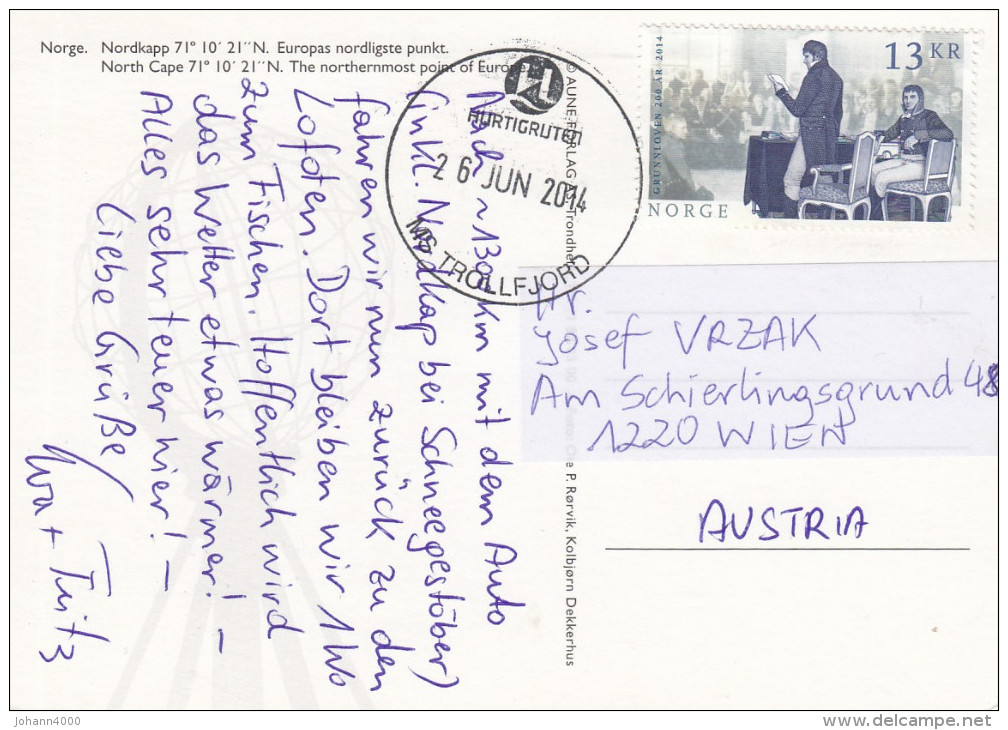 Norge. Nordkapp 71° 10´ 21´´N. Europas nordligste punkt.
North Cape 71° 10´ 21´´N. The northernmost point of Europe.
GRUNNLOVEN 200 ÅR 2014
13 KR
NORGE
HURTIGRUTEN
26 JUN 2014
MS TROLLFJORD
© AUNE FORLAG AS, Trondheim
P. Rørvik, Kolbjørn Dekkerhus
Nach ~ km mit dem Auto
(inkl. Nordkap bei Schneegestöber)
fahren wir nun zurück zu den
Lofoten. Dort bleiben wir 1 Wo
zum Fischen. Hoffentlich wird
das Wetter etwas wärmer! –
Alles sehr teuer hier! –
Liebe Grüße
+ Fritz
Hr.
Josef VRZAK
Am Schierlingsgrund 48
1220 WIEN
AUSTRIA
Johann4000
delcampe.net